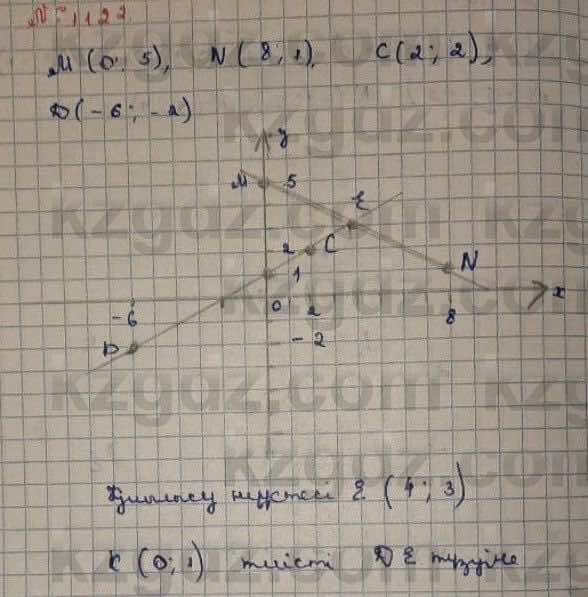 № 1122
M (0; 5), N (8; 1) C (2; 2),
D (-6; -2)
y
M 5 E
2 C
1 N
-6 0 2 8 x
D -2
Қиылысу нүктесі E (4; 3)
K (0; 1) тиісті DE түзуіне
kzgdz.com